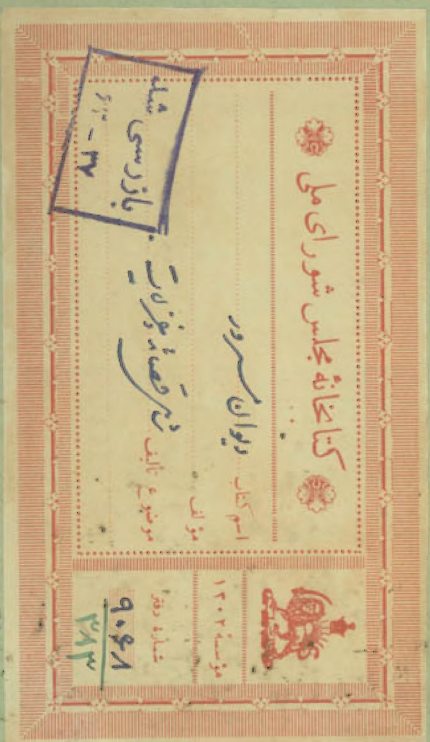 کتابخانهٔ مجلس شورای ملی
اسم کتاب دیوان سرور
مؤلف
موضوع تألیف
مؤسسهٔ ۱۳۰۲
شمارهٔ دفتر
۹۰۶۸
۳۸۳
بازرسی شد
۳۷ -